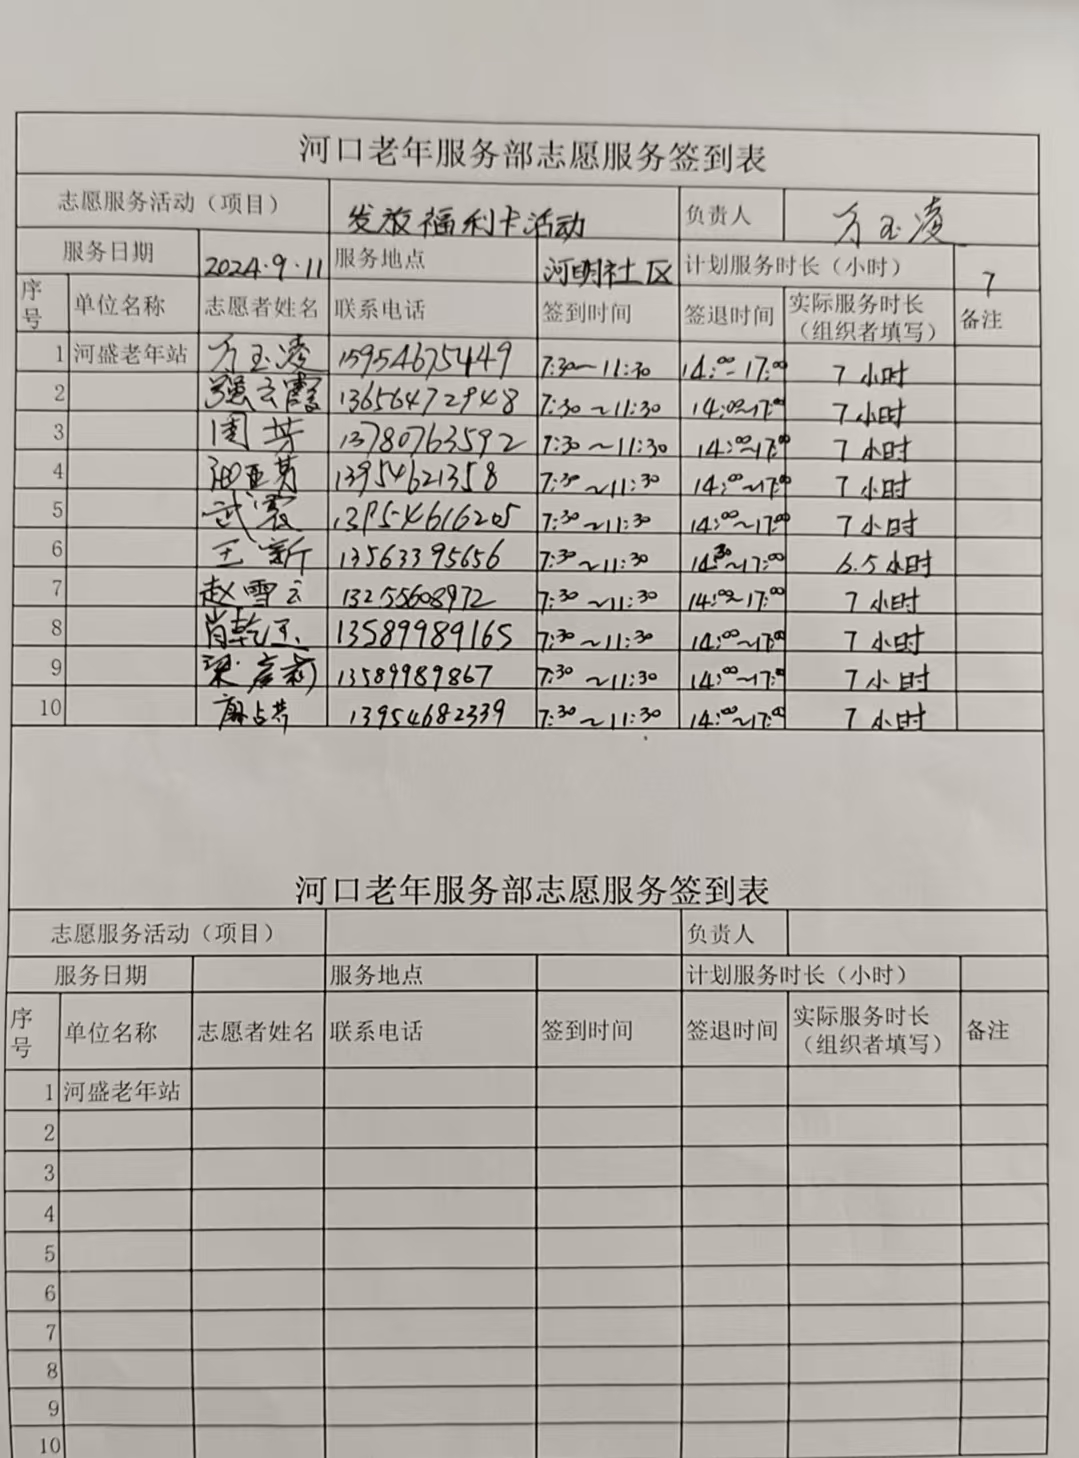 河口老年服务部志愿服务签到表
志愿服务活动（项目） 发放福利卡活动 负责人 方玉凌
服务日期 2024.9.11 服务地点 河明社区 计划服务时长（小时） 7
序号 单位名称 志愿者姓名 联系电话 签到时间 签退时间 实际服务时长（组织者填写） 备注
1 河盛老年站 方玉凌 15954675449 7:30~11:30 14:00-17:00 7小时
2 强云霞 13656472948 7:30~11:30 14:00~17:00 7小时
3 周芳 13780763592 7:30~11:30 14:00~17:00 7小时
4 13954621358 7:30~11:30 14:00~17:00 7小时
5 武霞 13954616205 7:30~11:30 14:00~17:00 7小时
6 王新 13563395656 7:30~11:30 14:30~17:00 6.5小时
7 赵雪云 13255608972 7:30~11:30 14:00~17:00 7小时
8 肖乾玉 13589989165 7:30~11:30 14:00~17:00 7小时
9 13589989867 7:30~11:30 14:00~17:00 7小时
10 13954682339 7:30~11:30 14:00~17:00 7小时
河口老年服务部志愿服务签到表
志愿服务活动（项目） 负责人
服务日期 服务地点 计划服务时长（小时）
序号 单位名称 志愿者姓名 联系电话 签到时间 签退时间 实际服务时长（组织者填写） 备注
1 河盛老年站
2
3
4
5
6
7
8
9
10